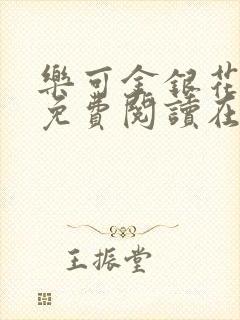 樂可金銀花
免費閱讀在
王振堂